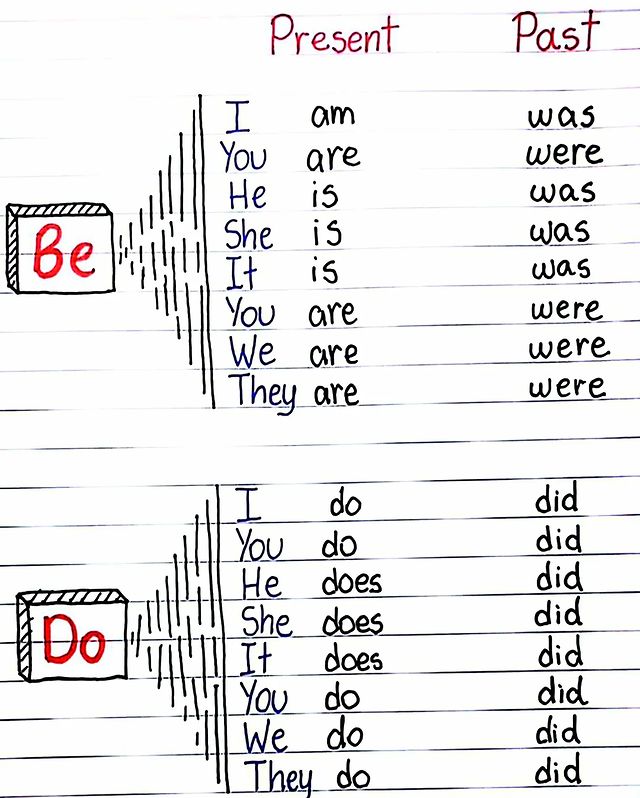 Present Past
Be
I am was
You are were
He is was
She is was
It is was
You are were
We are were
They are were
Do
I do did
You do did
He does did
She does did
It does did
You do did
We do did
They do did